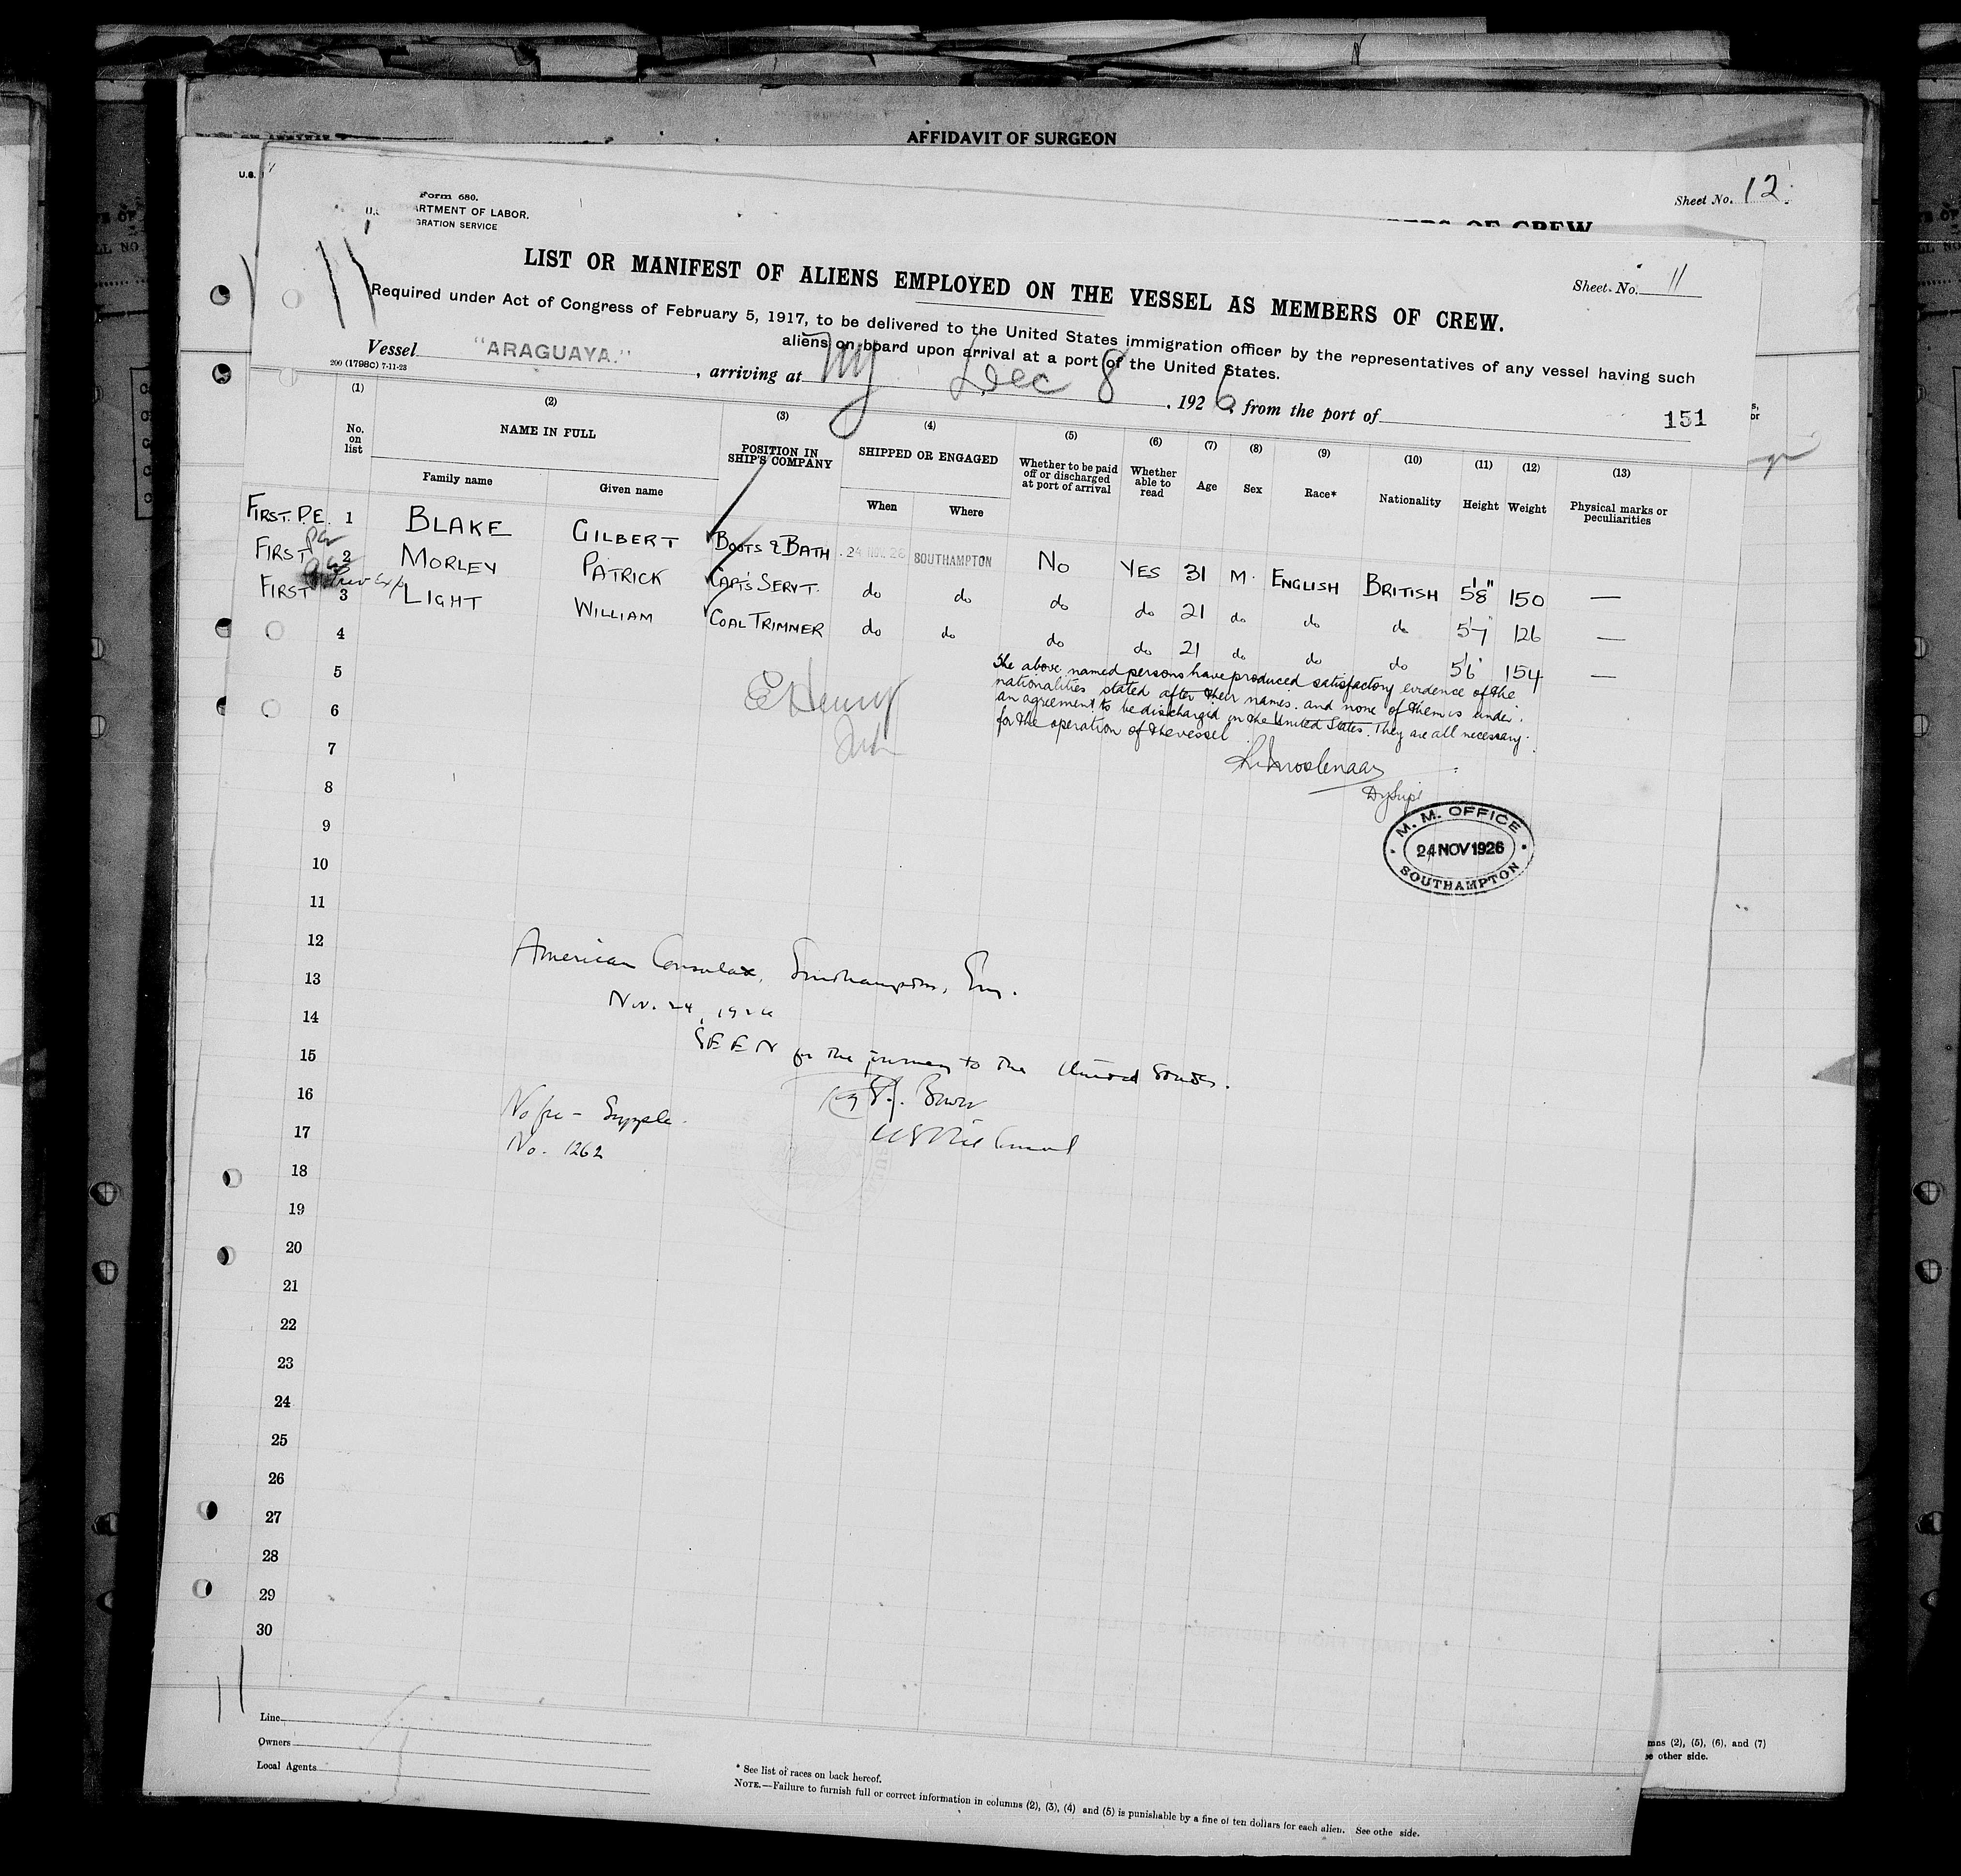 AFFIDAVIT OF SURGEON
U.S.
Sheet No. 12
Form 680.
U.S. ARTMENT OF LABOR.
GRATION SERVICE
OF CREW
LIST OR MANIFEST OF ALIENS EMPLOYED ON THE VESSEL AS MEMBERS OF CREW.
Sheet No. 11
Required under Act of Congress of February 5, 1917, to be delivered to the United States immigration officer by the representatives of any vessel having such
aliens on board upon arrival at a port of the United States.
Vessel "ARAGUAYA." , arriving at NY Dec 8 , 1926, from the port of
200 (1798C) 7-11-23
151
(1) (2) (3) (4) (5) (6) (7) (8) (9) (10) (11) (12) (13)
No. on list NAME IN FULL POSITION IN SHIP'S COMPANY SHIPPED OR ENGAGED Whether to be paid off or discharged at port of arrival Whether able to read Age Sex Race* Nationality Height Weight Physical marks or peculiarities
Family name Given name When Where
FIRST. P.E. 1 BLAKE GILBERT BOOTS & BATH 24 NOV 26 SOUTHAMPTON NO YES 31 M. ENGLISH BRITISH 5'8" 150 —
FIRST 2 MORLEY PATRICK CAPT'S SERVT. do do do do 21 do do do 5'7" 126 —
FIRST 3 LIGHT WILLIAM COAL TRIMMER do do do do 21 do do do 5'6" 154 —
4
5
6
7
8
9
10
11
12
13
14
15
16
17
18
19
20
21
22
23
24
25
26
27
28
29
30
The above named persons have produced satisfactory evidence of the
nationalities stated after their names. and none of them is under
an agreement to be discharged in the United States. They are all necessary
for the operation of the vessel
E Henry
Dy Supt
M. M. OFFICE
24 NOV 1926
SOUTHAMPTON
American Consulate, Southampton, Eng.
Nov. 24, 1926
SEEN for the journey to the United States.
No fee - Supple.
No. 1262
US Vice Consul
11
Line
Owners
Local Agents
* See list of races on back hereof.
NOTE.—Failure to furnish full or correct information in columns (2), (3), (4) and (5) is punishable by a fine of ten dollars for each alien. See othe side.
mns (2), (5), (6), and (7)
e other side.